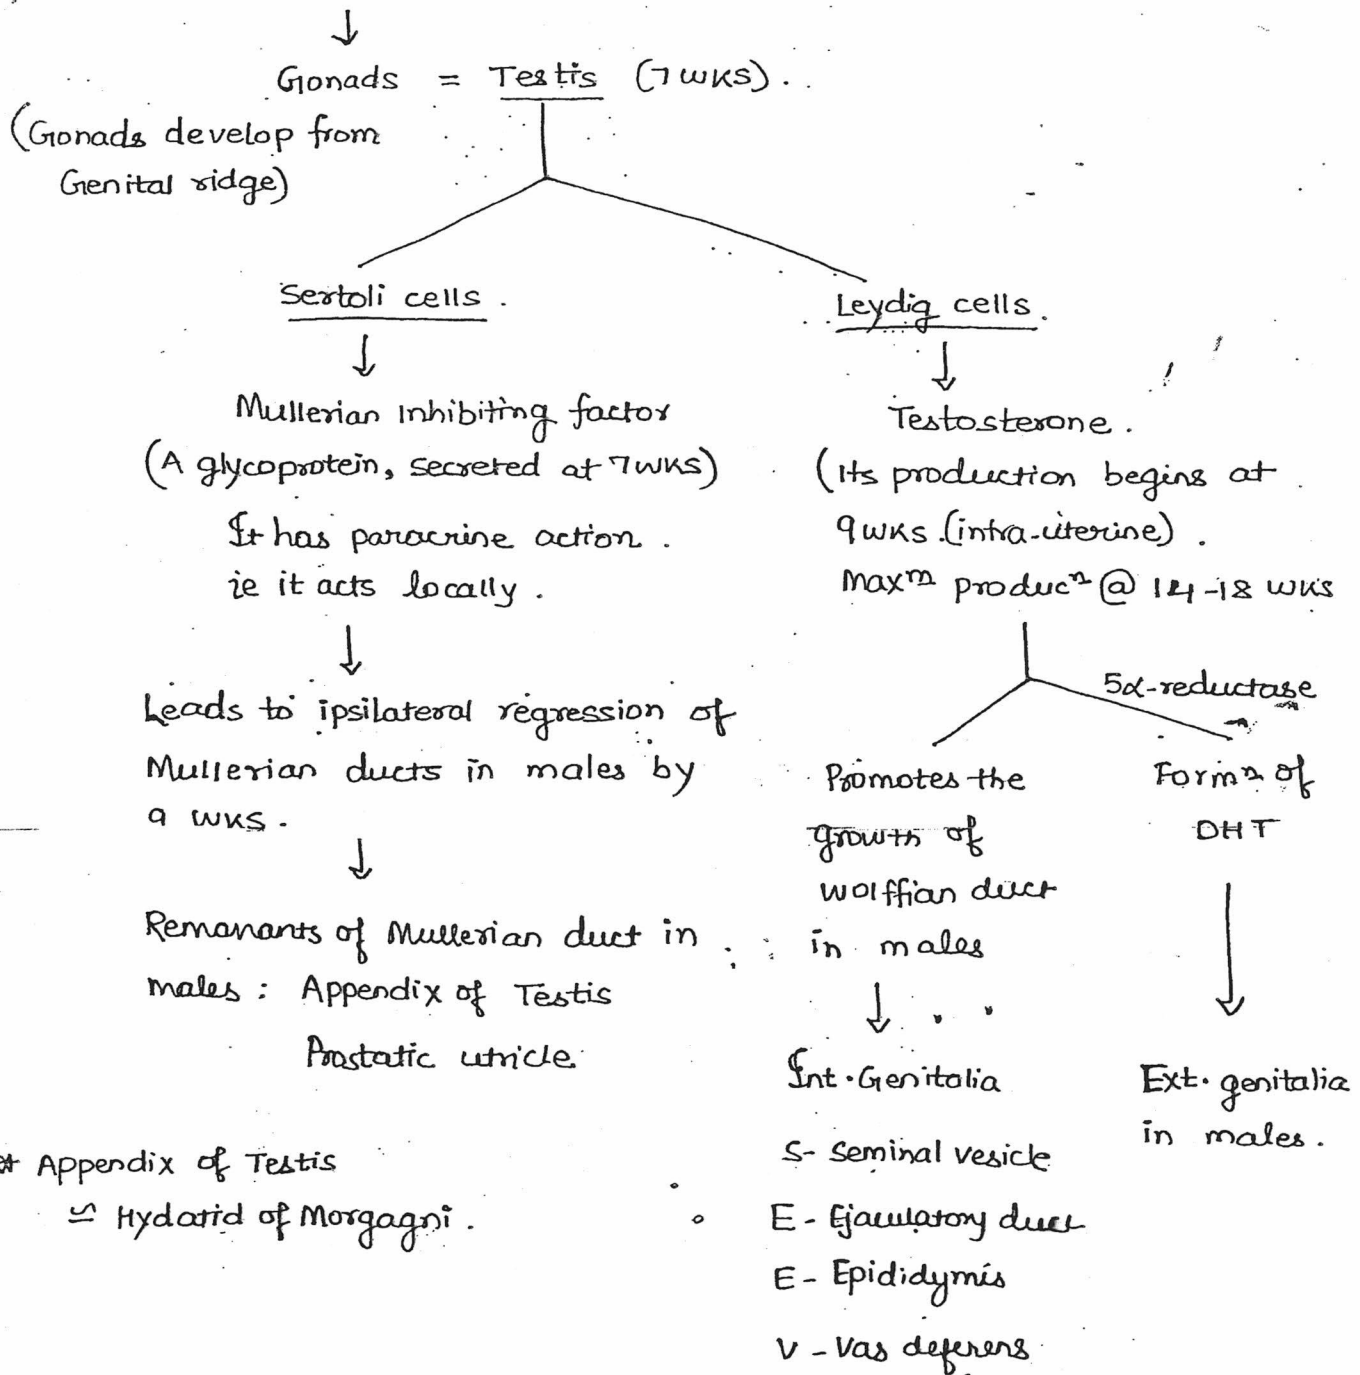 Gonads = Testis (7 wks).
(Gonads develop from
Genital ridge)
Sertoli cells.
Mullerian Inhibiting factor
(A glycoprotein, secreted at 7 wks)
It has paracrine action.
ie it acts locally.
Leads to ipsilateral regression of
Mullerian ducts in males by
9 wks.
Remanants of Mullerian duct in
males: Appendix of Testis
Prostatic utricle
* Appendix of Testis
≌ Hydatid of Morgagni.
Leydig cells.
Testosterone.
(Its production begins at
9 wks (intra-uterine).
Maxᵐ producⁿ @ 14-18 wks
Promotes the
growth of
wolffian duct
in males
Int. Genitalia
S- Seminal vesicle
E- Ejaculatory duct
E- Epididymis
V- Vas deferens
5α-reductase
Formⁿ of
DHT
Ext. genitalia
in males.